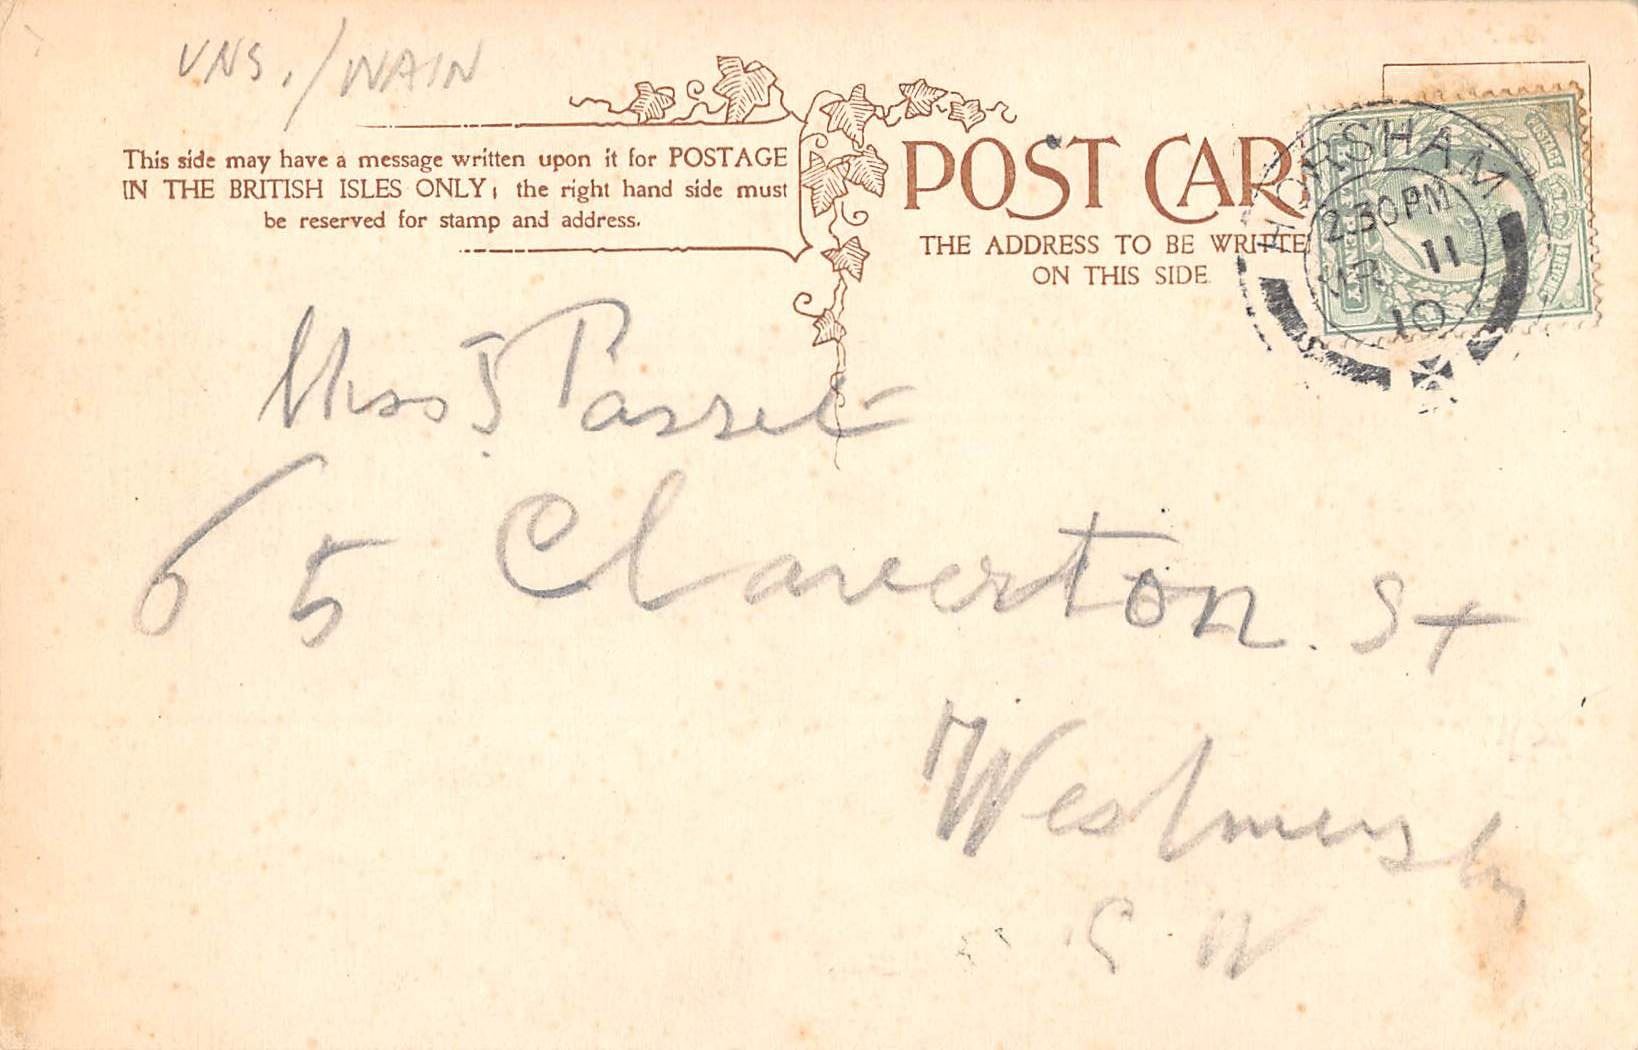 VNS. / WAIN
This side may have a message written upon it for POSTAGE
IN THE BRITISH ISLES ONLY; the right hand side must
be reserved for stamp and address.
POST CAR
THE ADDRESS TO BE WRITTE
ON THIS SIDE
HORSHAM
2.30 PM
MR 11
10
POSTAGE
Miss J
65 Claverton. St
S. W